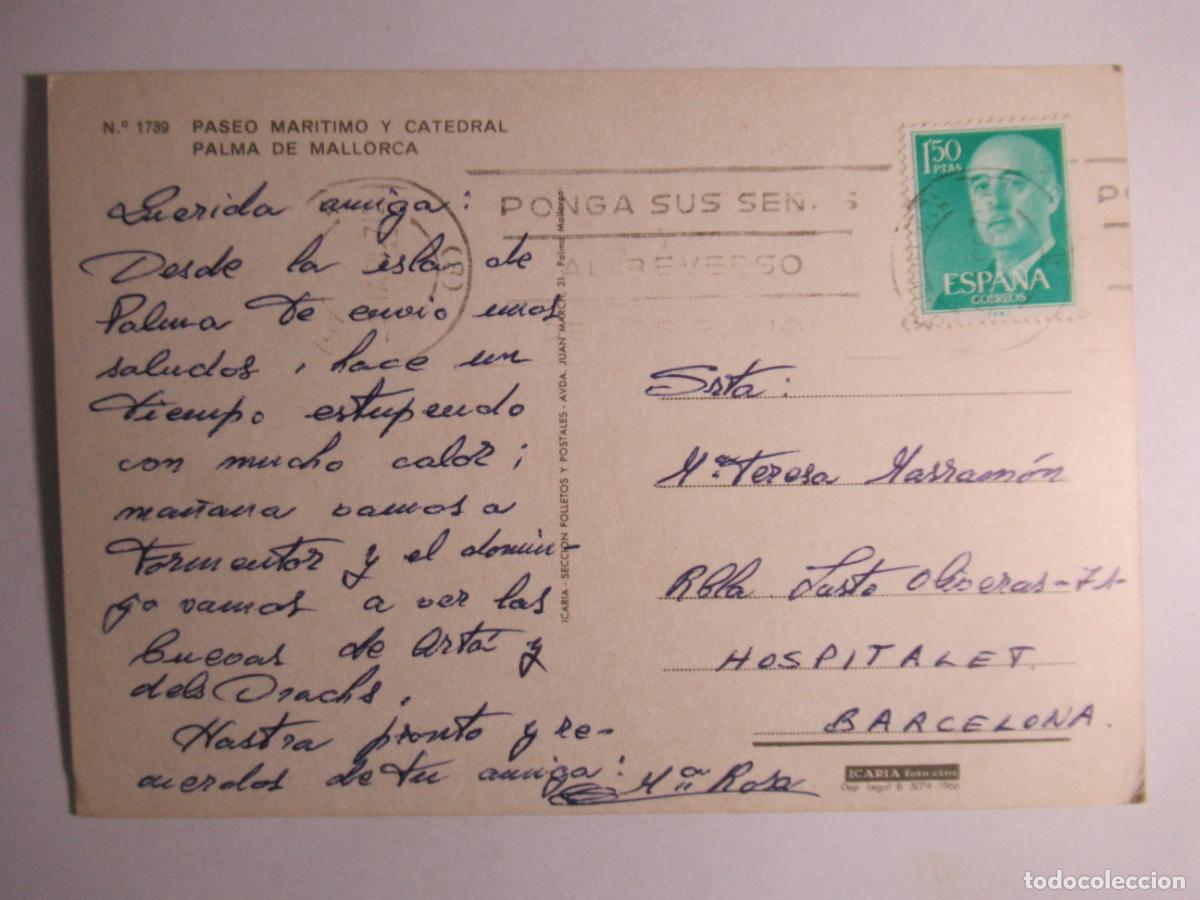 N.º 1789 PASEO MARITIMO Y CATEDRAL
PALMA DE MALLORCA
Querida amiga:
Desde la isla de
Palma Te envio unos
saludos, hace un
Tiempo estupendo
con mucho calor;
mañana vamos a
Formentor y el domin-
go vamos a ver las
Cuevas de Artá y
dels Drachs.
Hastra pronto y re-
cuerdos de tu amiga:
Mª Rosa
ICARIA - SECCION FOLLETOS Y POSTALES - AVDA. JUAN MARCH, 31. Palma Mallorca
PONGA SUS SEÑAS
AL REVERSO
(8)
PO
1'50
PTAS
ESPAÑA
CORREOS
Srta:
Mª Teresa Marramón
Rbla Justo Oliveras-71-
HOSPITALET.
BARCELONA.
ICARIA foto-cine
Dep. Legal B. 5074-1966
todocoleccion